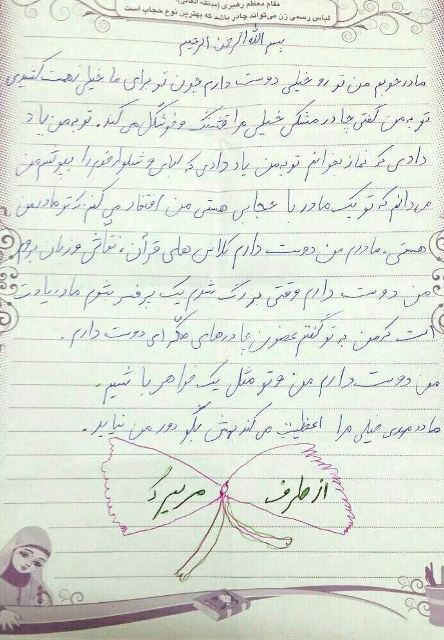 مقام معظم رهبری (مدظله العالی)
لباس رسمی زن می‌تواند چادر باشد که بهترین نوع حجاب است
بسم الله الرحمن الرحیم
مادر خوبم من تو رو خیلی دوست دارم چون تو برای ما خیلی زحمت کشیدی
تو به من گفتی چادر مشکی خیلی مرا قشنگ و خوشگل می کند. تو به من یاد
دادی که نماز بخوانم تو به من یاد دادی که لباس و شلوار فرم را بپوشم من
می دانم که تو یک مادر با حجابی هستی من افتخار می کنم که تو مادر من
هستی. مادرم من دوست دارم کلاس های قرآن، نقاشی و زبان بروم
من دوست دارم وقتی بزرگ شدم یک پرفسر بشوم مادر یادت
است که من به تو گفتم عضون چادرهای دوست دارم.
من دوست دارم من و تو مثل یک خواهر باشیم.
مادر مهدی خیلی مرا اعظیت می کند بهش بگو دور من نیاید.
از طرف